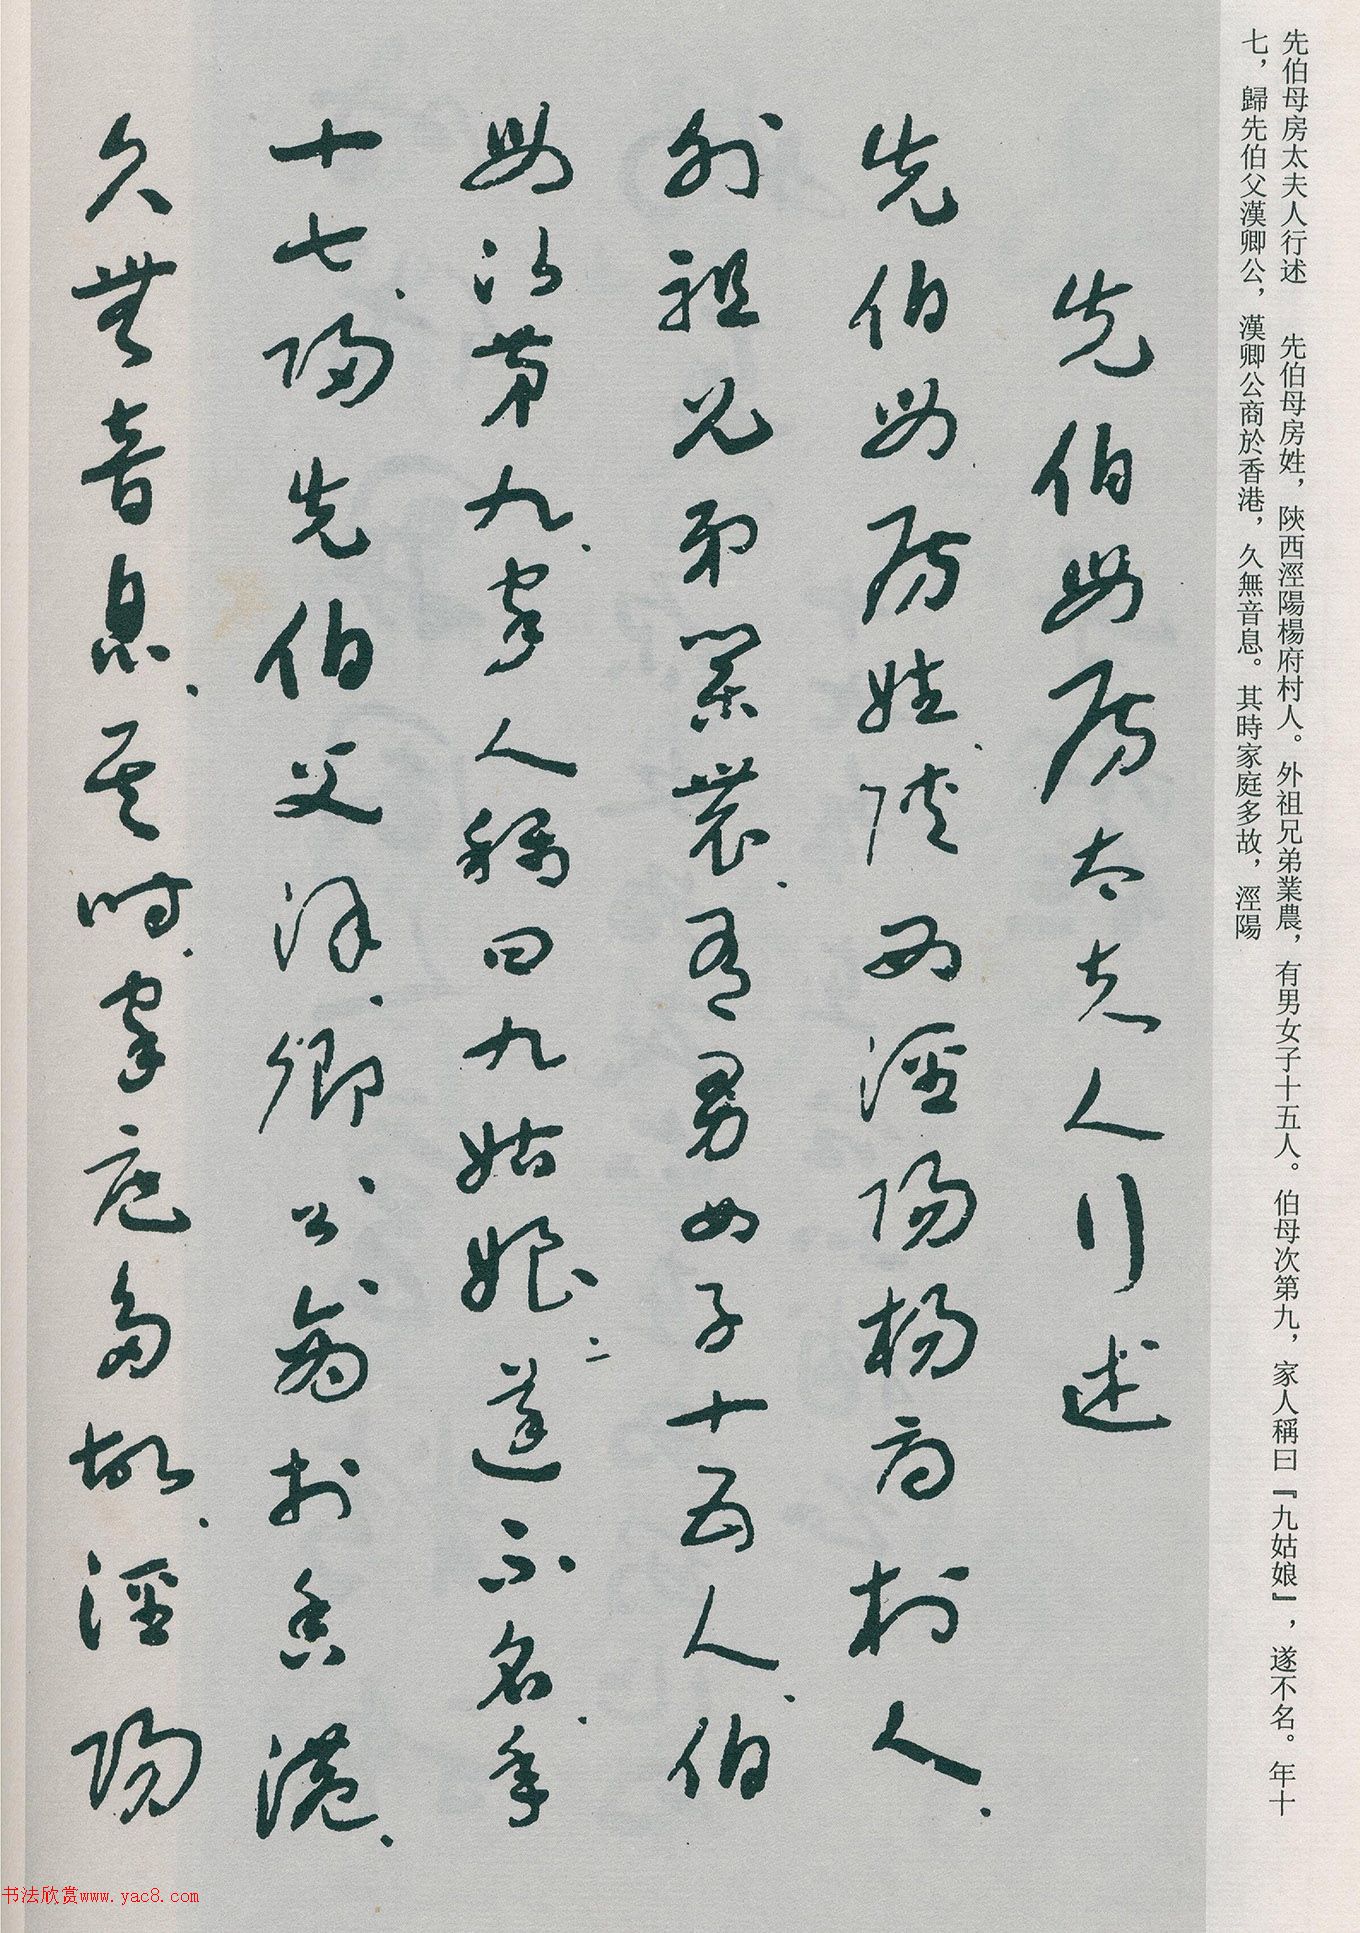 先伯母房太夫人行述　先伯母房姓，陝西涇陽楊府村人。外祖兄弟業農，有男女子十五人。伯母次第九，家人稱曰『九姑娘』，遂不名。年十
七，歸先伯父漢卿公，漢卿公商於香港，久無音息。其時家庭多故，涇陽
先伯母房太夫人行述
先伯母房姓、陝西涇陽楊府村人、
外祖兄弟業農、有男女子十五人、伯
母次第九、家人稱曰九姑娘、遂不名、年
十七、歸先伯父漢卿公、〻〻〻商於香港、
久無音息、其時、家庭多故、涇陽
书法欣赏www.yac8.com